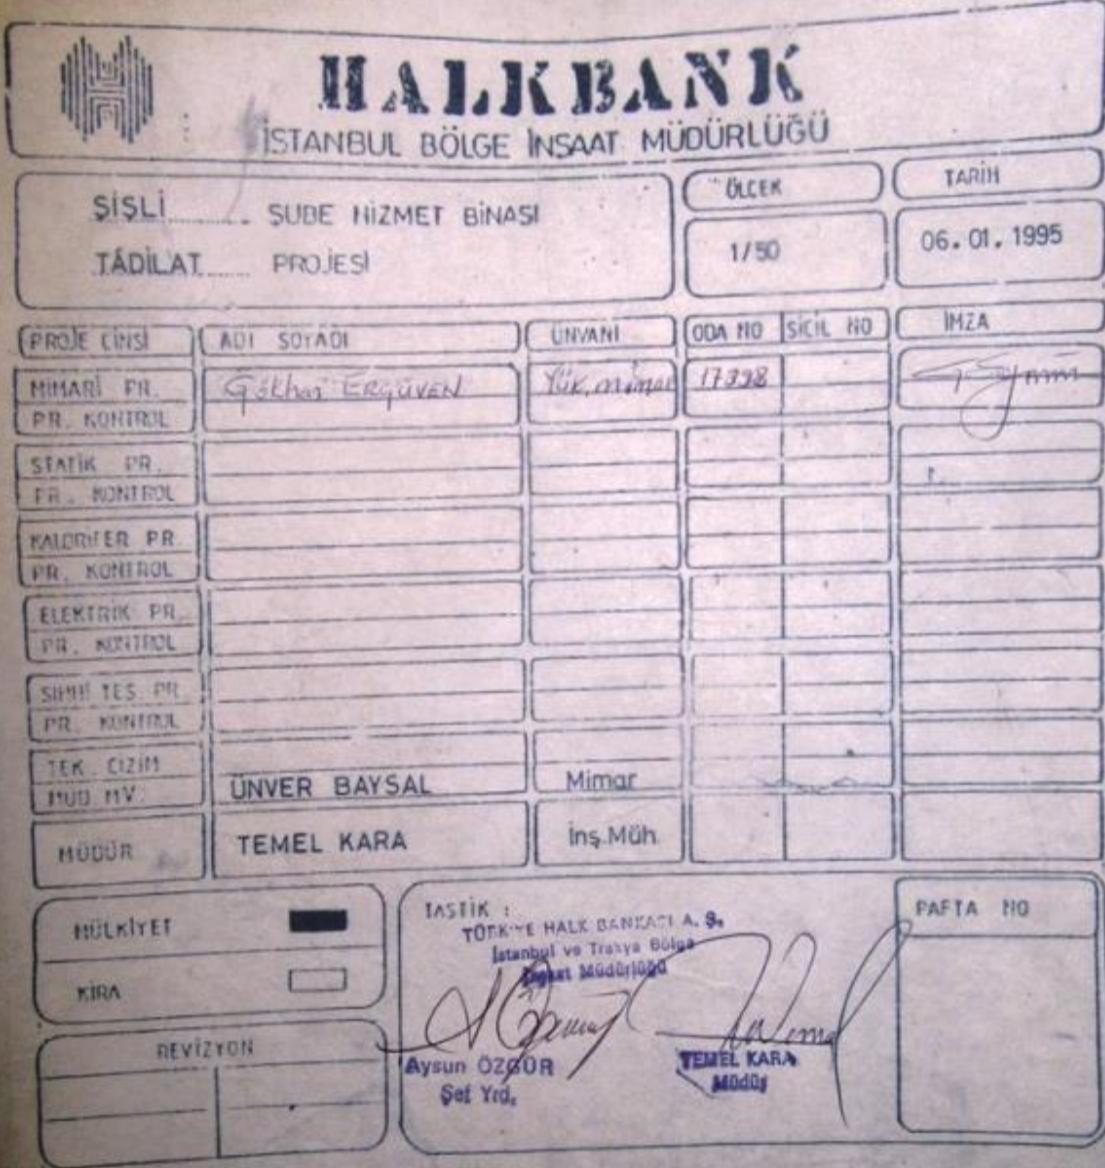 HALKBANK
İSTANBUL BÖLGE İNŞAAT MÜDÜRLÜĞÜ
ŞİŞLİ ........ ŞUBE HİZMET BİNASI
TÁDİLAT ........ PROJESİ
ÖLÇEK
1/50
TARİH
06.01.1995
PROJE CİNSİ ADI SOYADI ÜNVANI ODA NO SİCİL NO İMZA
MİMARİ PR. Gökhan ERGÜVEN Yük. mimar 17398
PR. KONTROL
STATİK PR.
PR. KONTROL
KALORİFER PR.
PR. KONTROL
ELEKTRİK PR.
PR. KONTROL
SIHHİ TES. PR.
PR. KONTROL
TEK. ÇİZİM
MÜD. MV. ÜNVER BAYSAL Mimar
MÜDÜR TEMEL KARA İnş.Müh.
MÜLKİYET
KİRA
REVİZYON
TASTİK :
TÜRKİYE HALK BANKASI A. Ş.
İstanbul ve Trakya Bölge
İnşaat Müdürlüğü
Aysun ÖZGÜR
Şef Yrd.
TEMEL KARA
Müdür
PAFTA NO